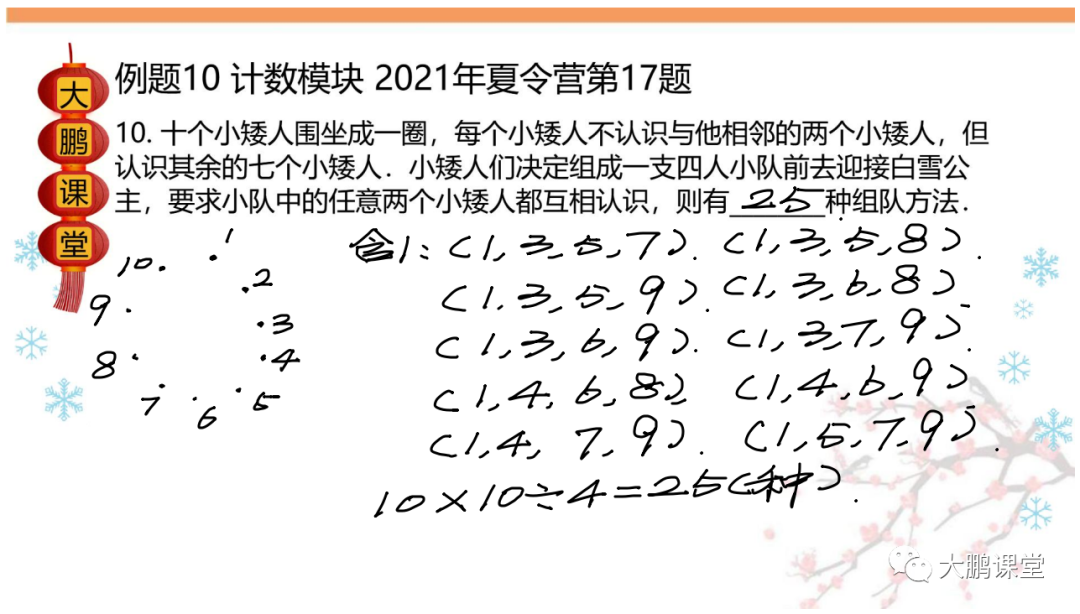 大鹏课堂
例题10 计数模块 2021年夏令营第17题
10. 十个小矮人围坐成一圈，每个小矮人不认识与他相邻的两个小矮人，但
认识其余的七个小矮人．小矮人们决定组成一支四人小队前去迎接白雪公
主，要求小队中的任意两个小矮人都互相认识，则有 25 种组队方法．
1
2
3
4
5
6
7
8
9
10
含1：(1,3,5,7). (1,3,5,8).
(1,3,5,9). (1,3,6,8)
(1,3,6,9). (1,3,7,9).
(1,4,6,8) (1,4,6,9)
(1,4,7,9). (1,5,7,9).
10×10÷4=25(种).
大鹏课堂